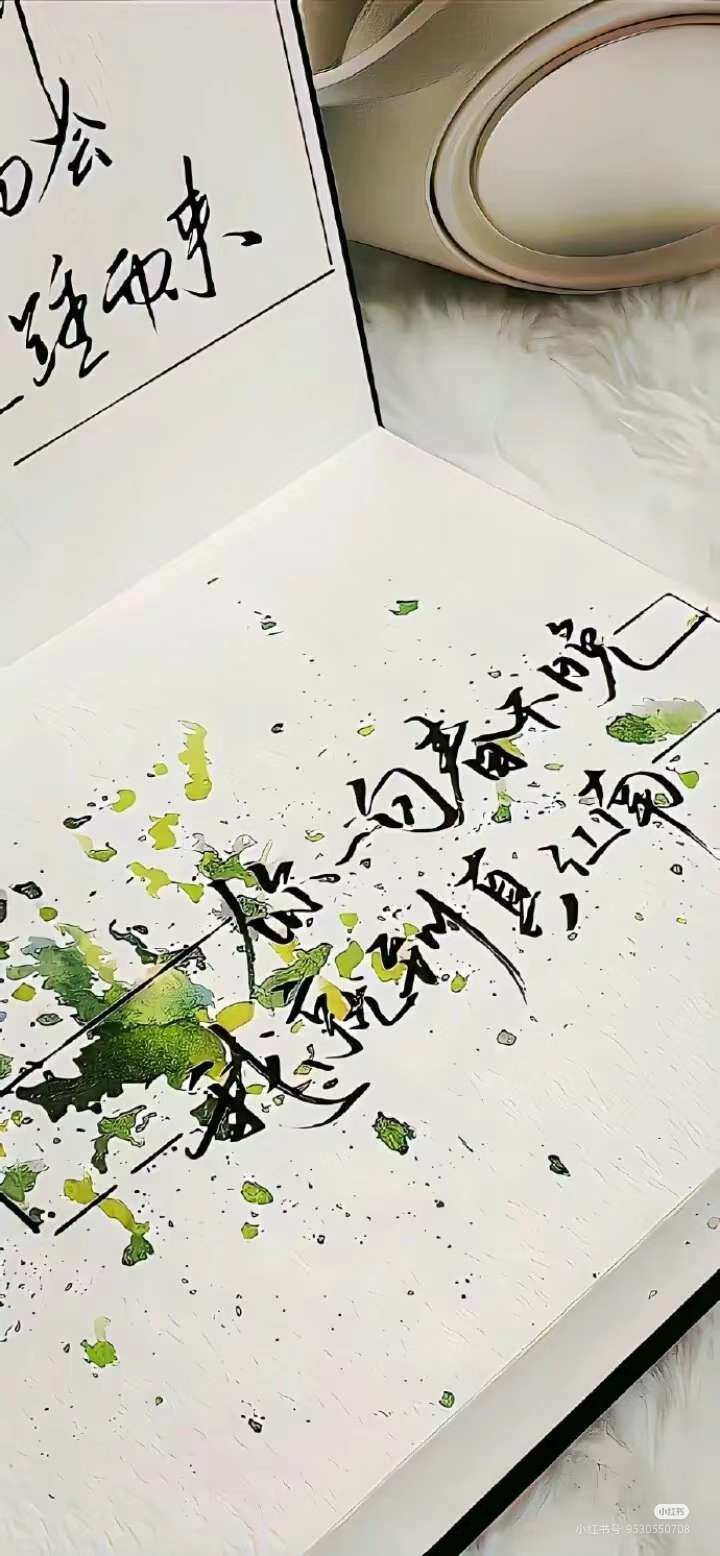 会
踵而来
你一句春不晚
我就到真江南
小红书
小红书号: 9530550708